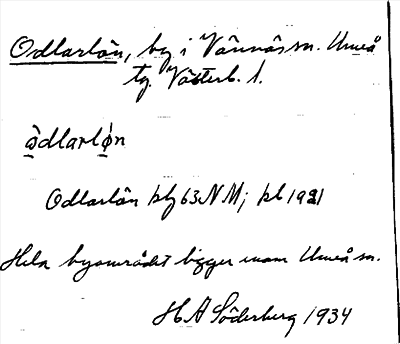 Odlarlån, by i Vännäs sn. Umeå
tg. Västerb. l.
òdlarlǿn
Odlarlån hfl 63 NM; hfl 1921
Hela byområdet ligger inom Umeå sn.
H A Söderberg 1934